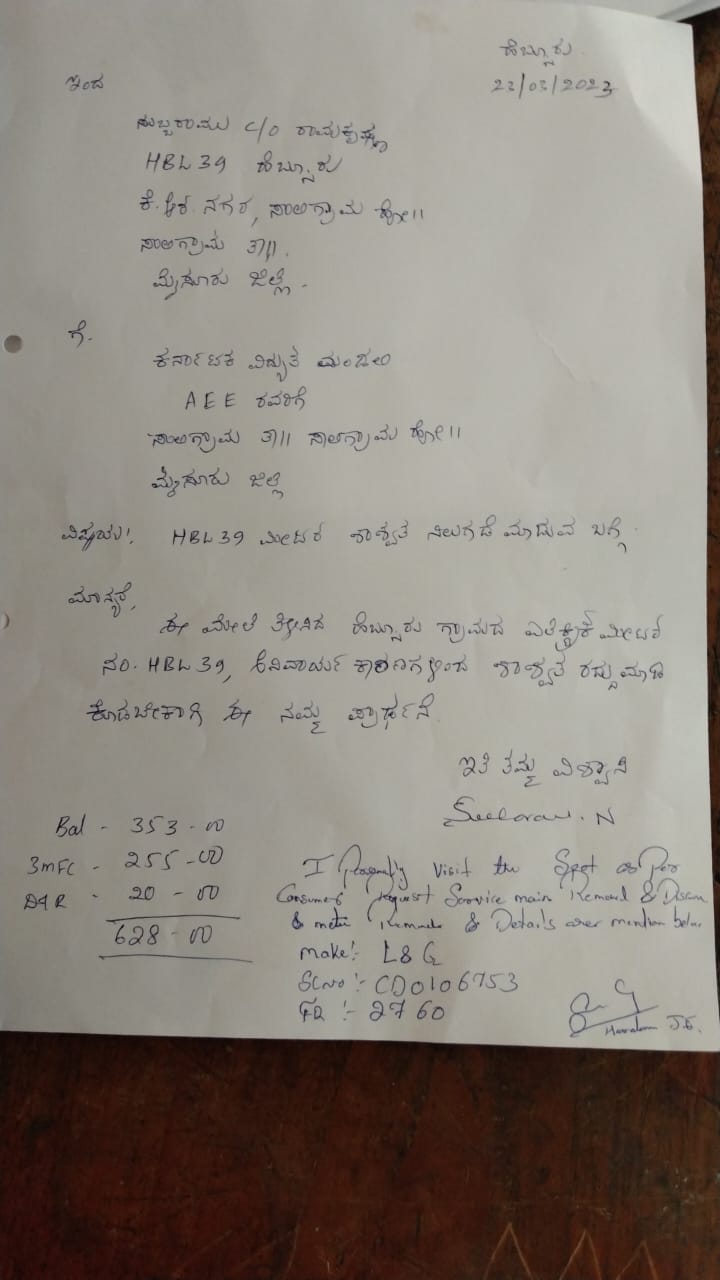 ಹೆಬ್ಸೂರು
23/03/2023
ಇಂದ
ಸುಬ್ಬರಾಮು c/o ರಾಮಕೃಷ್ಣ
HBL 39 ಹೆಬ್ಸೂರು
ಕೆ.ಆರ್. ನಗರ, ಸಾಲಿಗ್ರಾಮ ಹೋ||
ಸಾಲಿಗ್ರಾಮ ತಾ||.
ಮೈಸೂರು ಜಿಲ್ಲೆ.
ಗೆ.
ಕರ್ನಾಟಕ ವಿದ್ಯುತ ಮಂಡಲಿ
AEE ರವರಿಗೆ
ಸಾಲಿಗ್ರಾಮ ತಾ|| ಸಾಲಿಗ್ರಾಮ ಹೋ||
ಮೈಸೂರು ಜಿಲ್ಲೆ
ವಿಷಯ: HBL39 ಮೀಟರ ಶಾಶ್ವತ ನಿಲುಗಡೆ ಮಾಡುವ ಬಗ್ಗೆ.
ಮಾನ್ಯರೆ,
ಈ ಮೇಲೆ ತಿಳಿಸಿದ ಹೆಬ್ಸೂರು ಗ್ರಾಮದ ಮೀಟರ
ನಂ. HBL 39, ಅನಿವಾರ್ಯ ಕಾರಣಗಳಿಂದ ಶಾಶ್ವತ ರದ್ದು ಮಾಡಿ
ಕೊಡಬೇಕಾಗಿ ಈ ನಮ್ಮ ಪ್ರಾರ್ಥನೆ.
ಇತಿ ತಮ್ಮ ವಿಶ್ವಾಸಿ
Bal - 353-00
3MFC - 255-00
D&R - 20-00
628-00
I Personally Visit the Spot as Per
Consumer Request Service main Removed &
& meter & Details are mention below
make:- L&G
SLNo:- CD0106753
FR :- 2760
J.E.